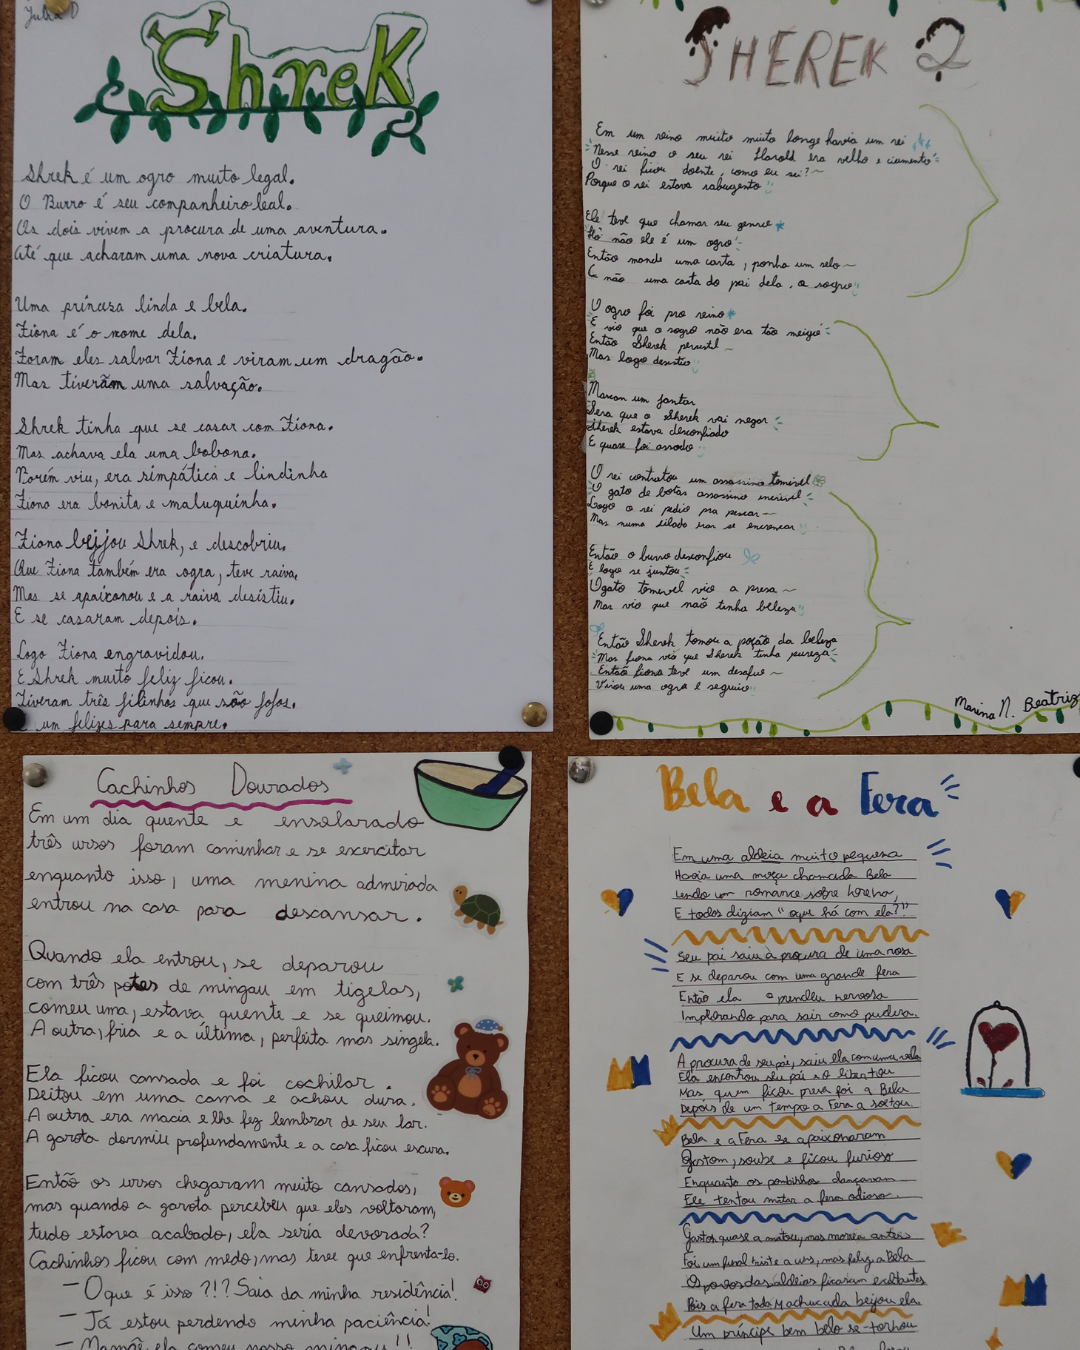 Julia D
Shrek
Shrek é um ogro muito legal.
O Burro é seu companheiro leal.
Os dois vivem a procura de uma aventura.
Até que acharam uma nova criatura.
Uma princesa linda e bela.
Fiona é o nome dela.
Foram eles salvar Fiona e viram um dragão.
Mas tiveram uma salvação.
Shrek tinha que se casar com Fiona.
Mas achava ela uma bobona.
Porém viu, era simpática e lindinha
Fiona era bonita e maluquinha.
Fiona beijou Shrek, e descobriu.
Que Fiona também era ogra, teve raiva.
Mas se apaixonou e a raiva desistiu.
E se casaram depois.
Logo Fiona engravidou.
E Shrek muito feliz ficou.
Tiveram três filinhos que são fofos.
um felizes para sempre.
SHEREK 2
Em um reino muito muito longe havia um rei
Nesse reino o seu rei Harold era velho e ciumento
O rei ficou doente, como eu sei?
Porque o rei estava rabugento
Ele teve que chamar seu genro
Há não ele é um ogro
Então mande uma carta, ponha um selo
E não uma carta do pai dela, o sogro
O ogro foi pro reino
E viu que o sogro não era tão meigo
Então Sherek
Mas logo desistiu
Marcam um jantar
Sera que o Sherek vai negar
Sherek estava desconfiado
E quase foi assado
O rei contratou um assassino temivel
O gato de botas assassino incrivel
Logo o rei pediu pra pescar
Mas numa silada iram se encrencar
Então o burro desconfiou
E logo se juntou
O gato temivel viu a presa
Mas viu que não tinha beleza
Então Sherek tomou a poção da beleza
Mas fiona viu que Sherek tinha pureza
Então fiona teve um desafio
Virou uma ogra e seguiu
Marina N. Beatriz
Cachinhos Dourados
Em um dia quente e ensolarado
três ursos foram caminhar e se exercitar
enquanto isso, uma menina admirada
entrou na casa para descansar.
Quando ela entrou, se deparou
com três potes de mingau em tigelas,
comeu uma, estava quente e se queimou.
A outra, fria e a última, perfeita mas singela.
Ela ficou cansada e foi cochilar.
Deitou em uma cama e achou dura.
A outra era macia e lhe fez lembrar de seu lar.
A garota dormiu profundamente e a casa ficou escura.
Então os ursos chegaram muito cansados,
mas quando a garota percebeu que eles voltaram,
tudo estava acabado, ela seria devorada?
Cachinhos ficou com medo, mas teve que enfrenta-lo.
— O que é isso ?!? Saia da minha residência!
— Já estou perdendo minha paciência!
— Mamãe ela comeu nosso mingau!!
Bela e a Fera
Em uma aldeia muito pequena
Havia uma moça chamada Bela
Lendo um romance sobre
E todos diziam "oque há com ela?"
Seu pai saiu à procura de uma rosa
E se deparou com uma grande fera
Então ela o prendeu nervosa
Implorando para sair como pudera.
A procura de seu pai, saiu ela com uma vela
Ela encontrou seu pai e o libertou
Mas quem ficou presa foi a Bela
Depois de um tempo a Fera a soltou
Bela e a Fera se apaixonaram
Gastom, soube e ficou furioso
Enquanto os pombinhos dançavam
Ele tentou matar a fera odioso.
Gaston quase a matou, mas morreu antes
Foi um final triste a uns, mas feliz a Bela
Os povos das aldeias ficaram exaltantes
Pois a fera toda Machucada beijou ela
Um príncipe bem belo se tornou